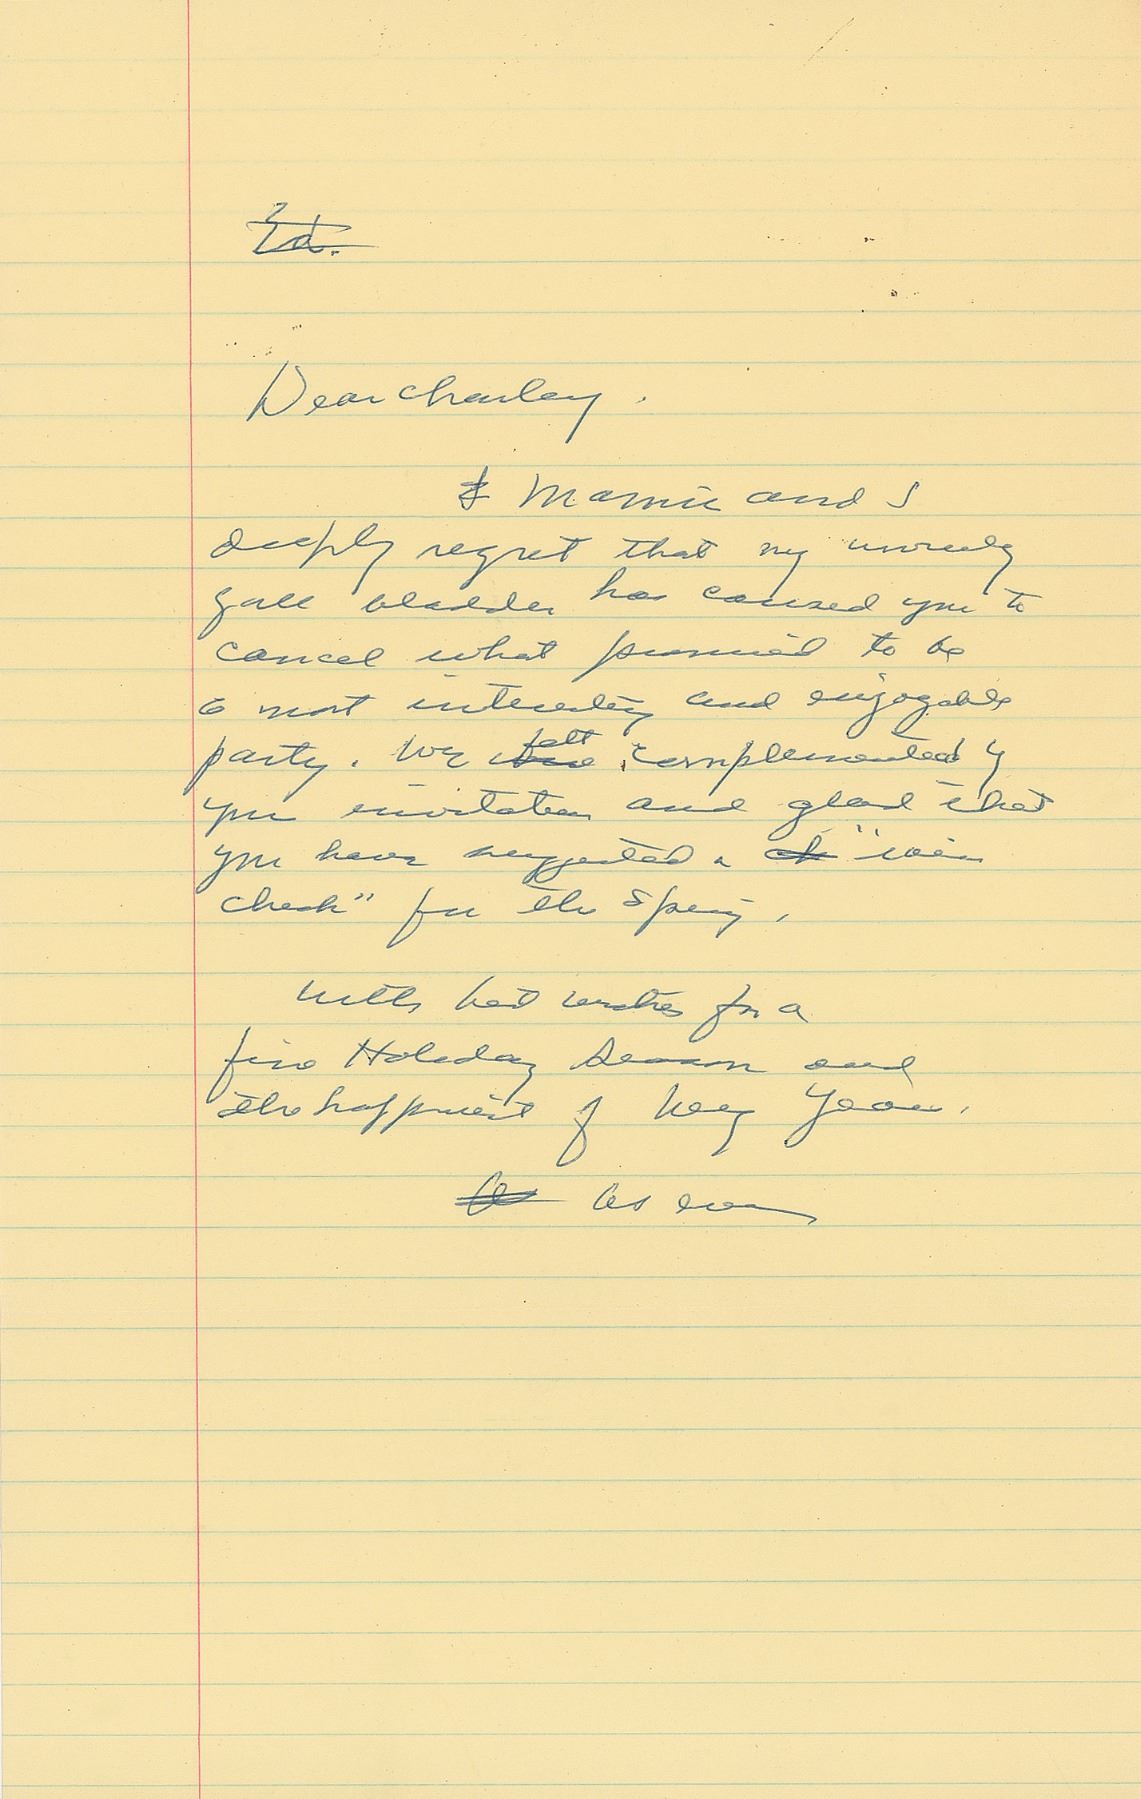 Ed.
Dear Charley.
I Mamie and I
deeply regret that my unruly
gall bladder has caused you to
cancel what promised to be
a most interesting and enjoyable
party. We felt complemented by
your invitation and glad that
you have suggested a ch "rain
check" for the Spring.
With best wishes for a
fine Holiday Season and
the happiest of New Years.
As ever